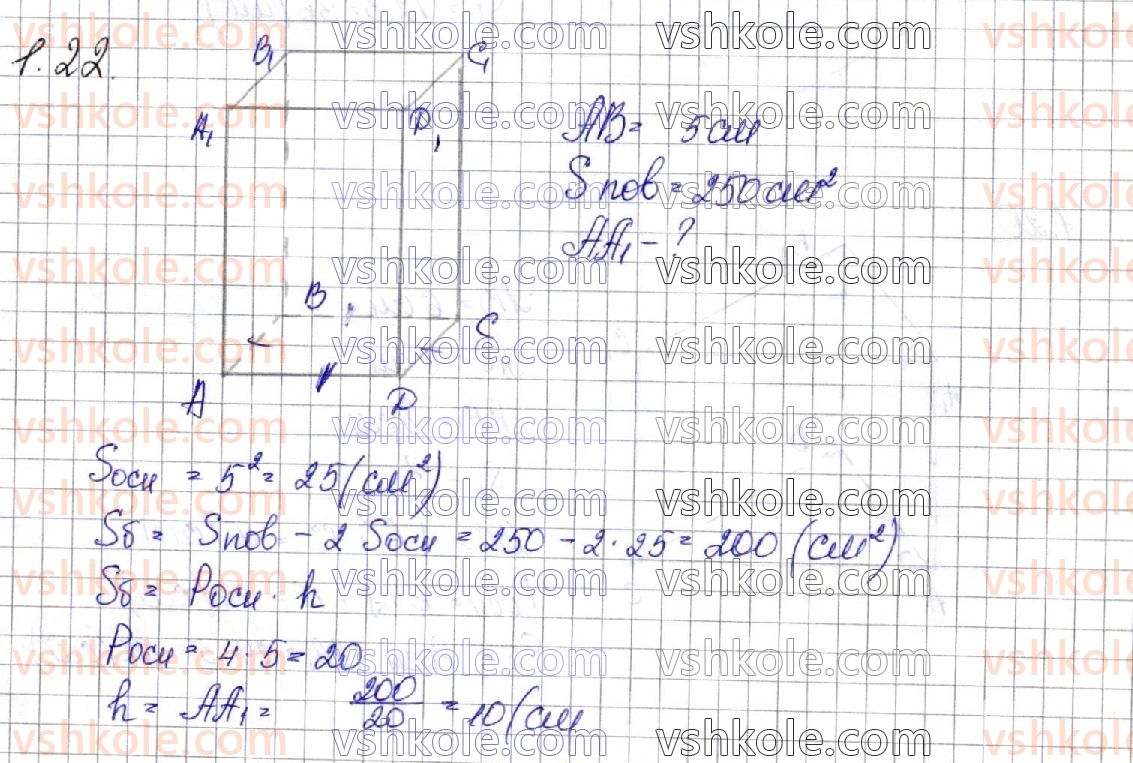 1.22.
B₁ C₁
A₁ D₁
AB = 5 см
Sпов = 250 см²
AA₁ - ?
B C
A D
Sосн = 5² = 25 (см²)
Sб = Sпов - 2 Sосн = 250 - 2 · 25 = 200 (см²)
Sб = Pосн · h
Pосн = 4 · 5 = 20
h = AA₁ = 200/20 = 10 (см
vshkole.com